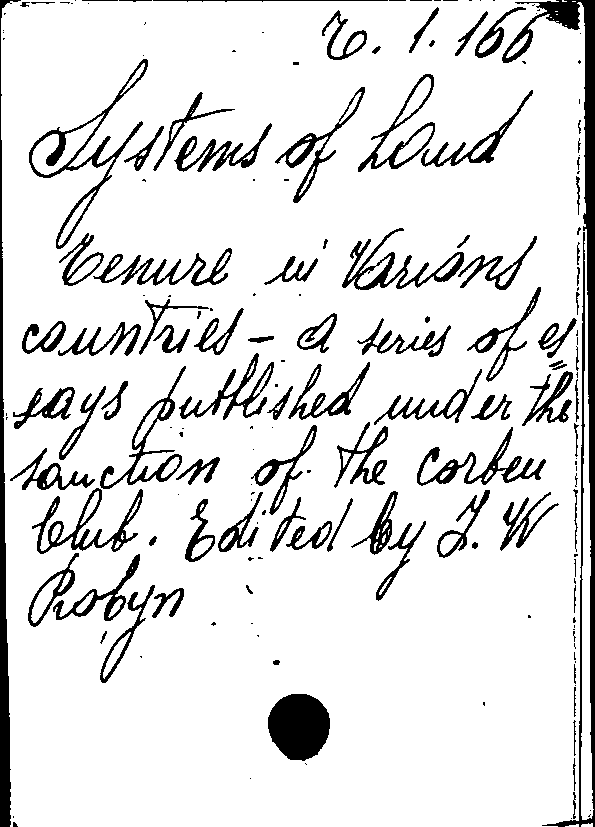 T. 1. 166
Systems of Land
Tenure in Various
countries - A series of es
says published under the
sanction of the Corben
Club. Edited by J. W
Probyn